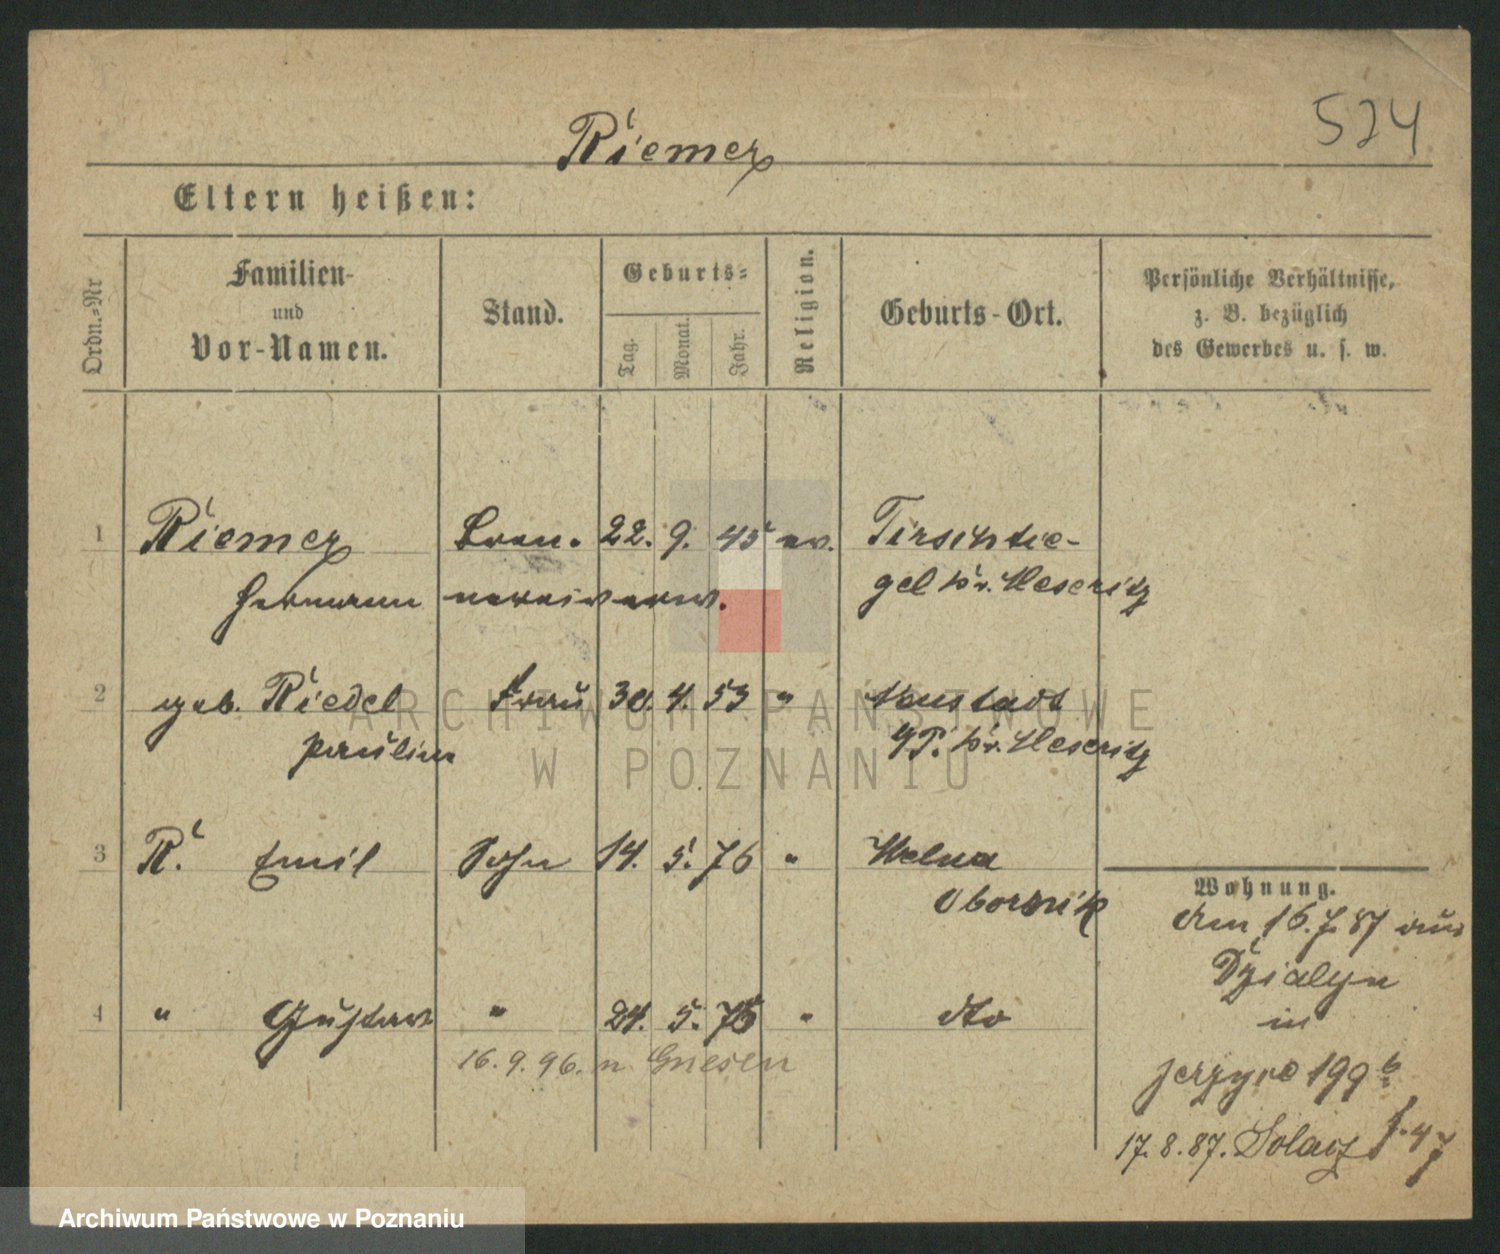 Riemer
524
Eltern heißen:
Ordn.=Nr
Familien-
und
Vor-Namen.
Stand.
Geburts=
Tag.
Monat.
Jahr.
Religion.
Geburts-Ort.
Persönliche Verhältnisse,
z. B. bezüglich
des Gewerbes u. s. w.
1 Riemer Bren- 22. 9. 45 ev. Tirschtie-
Hermann nereiverw. gel Kr. Meseritz
2 geb. Riedel Frau 30. 4. 53 " Neustadt
Pauline Kr. Meseritz
3 R. Emil Sohn 14. 5. 76 " Welna
Obornik
4 " Gustav " 24. 5. " dto
16. 9. 96. n. Gnesen
Wohnung.
Am 16. 7. 87 aus
Dzialyn
in
Jerzyce 199 b
17. 8. 87. Solacz
ARCHIWUM PAŃSTWOWE
W POZNANIU
Archiwum Państwowe w Poznaniu